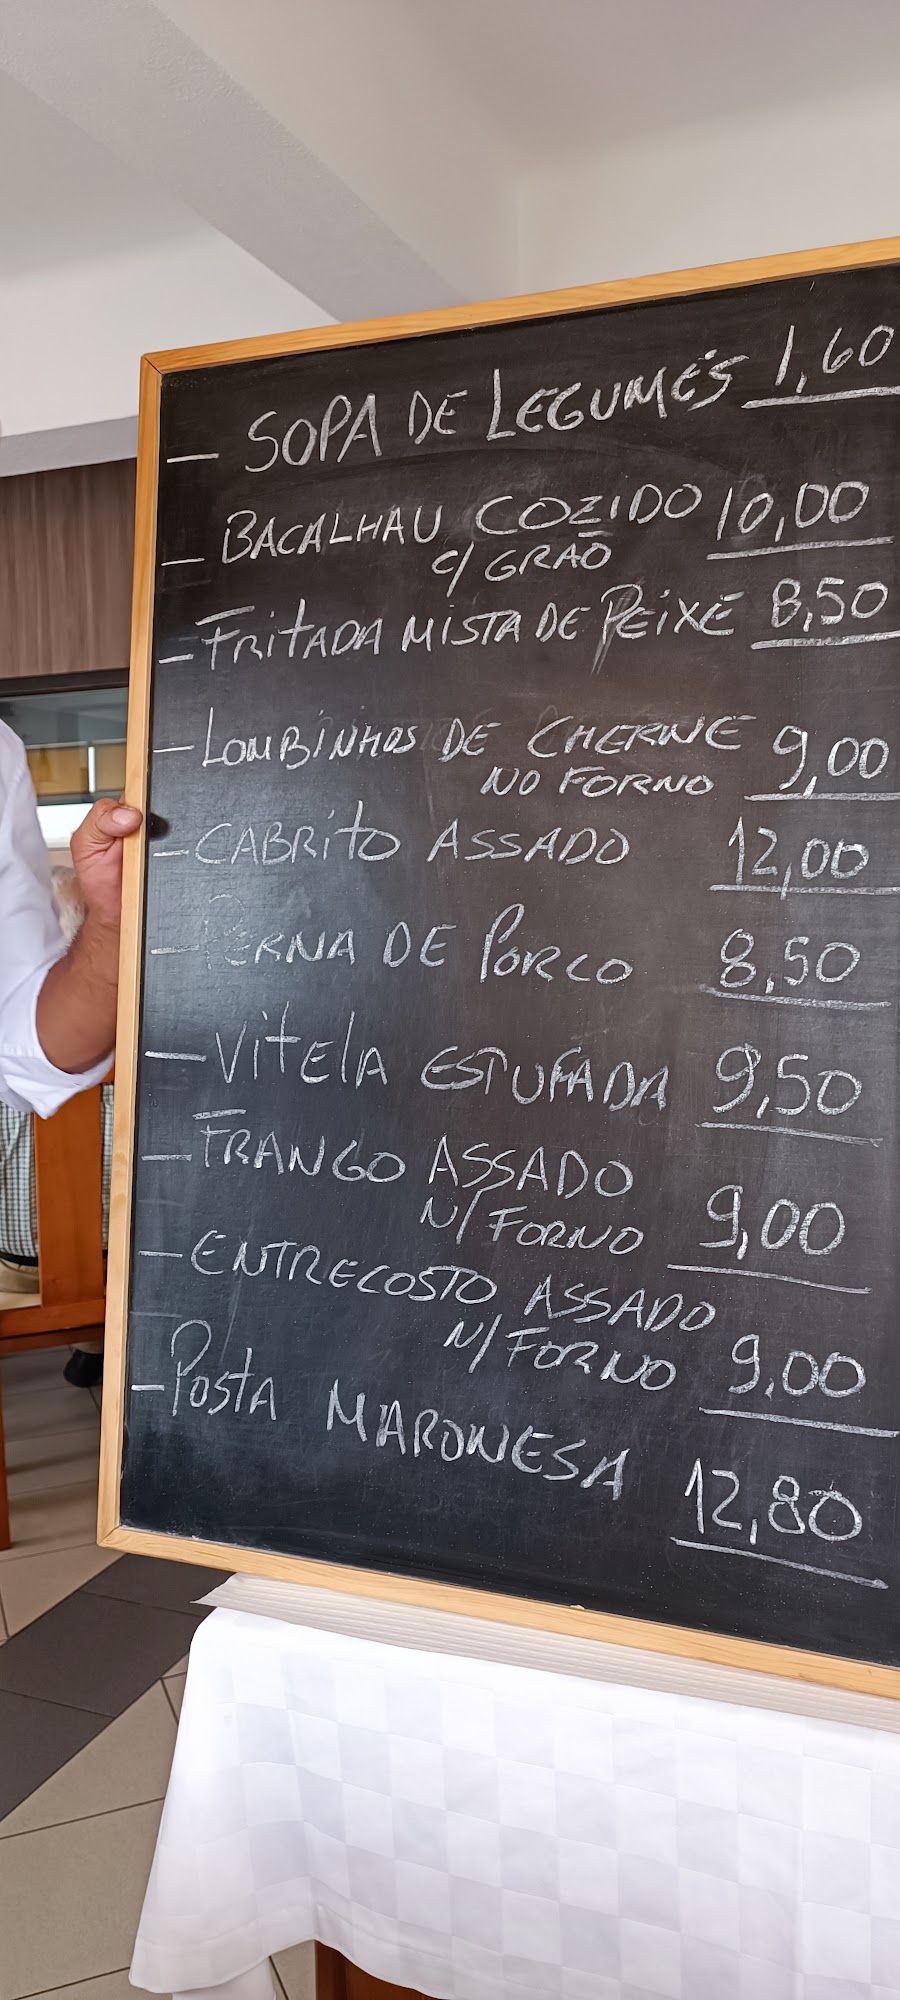 - SOPA DE LEGUMES 1,60
- BACALHAU COZIDO 10,00
C/ GRÃO
- FRITADA MISTA DE PEIXE 8,50
- LOMBINHOS DE CHERNE 9,00
NO FORNO
- CABRITO ASSADO 12,00
- PERNA DE PORCO 8,50
- VITELA ESTUFADA 9,50
- FRANGO ASSADO
N/ FORNO 9,00
- ENTRECOSTO ASSADO
N/ FORNO 9,00
- POSTA MARONESA 12,80